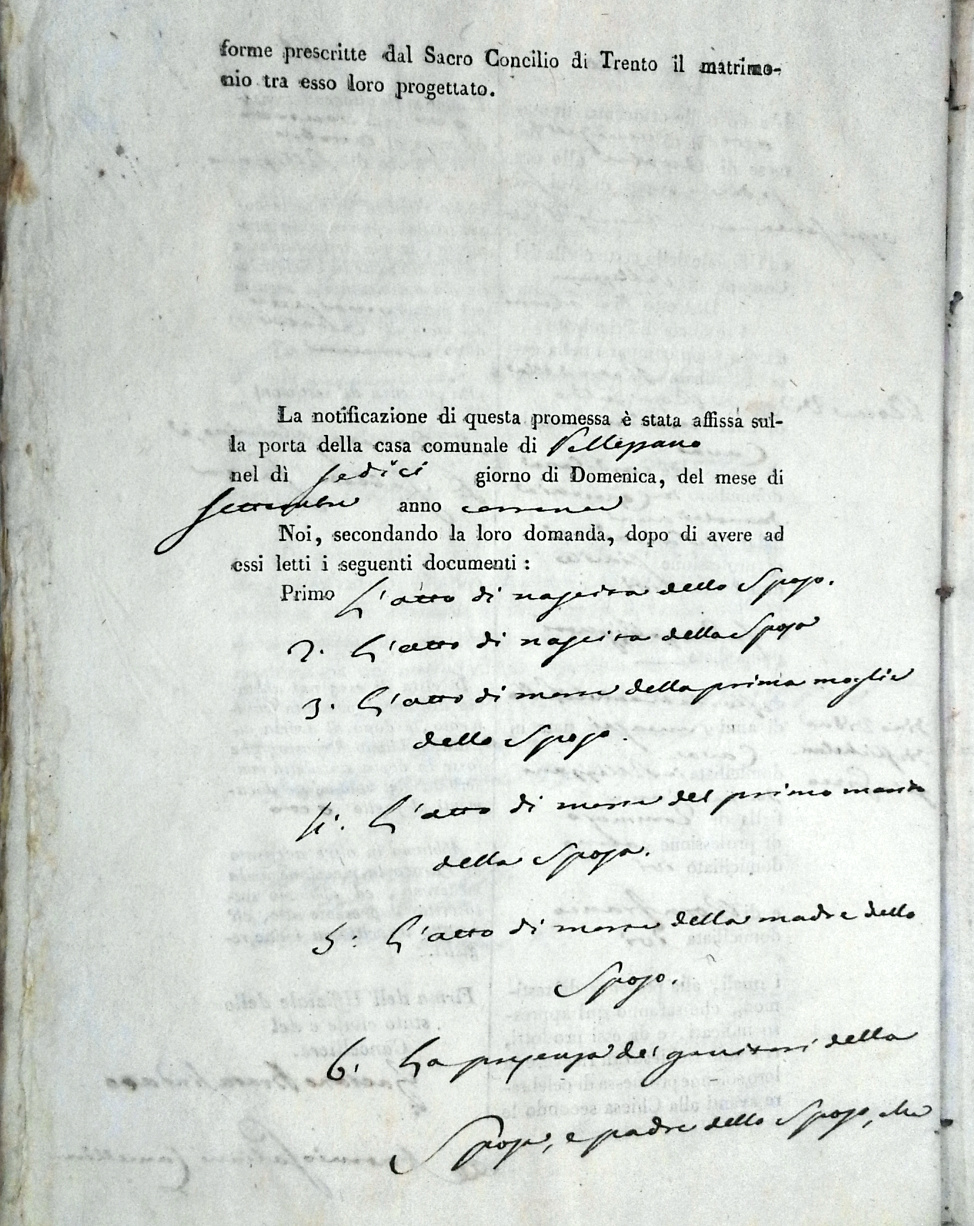 forme prescritte dal Sacro Concilio di Trento il matrimo-
nio tra esso loro progettato.
La notificazione di questa promessa è stata affissa sul-
la porta della casa comunale di Pellezzano
nel dì sedici giorno di Domenica, del mese di
settembre anno corrente
Noi, secondando la loro domanda, dopo di avere ad
essi letti i seguenti documenti :
Primo L'atto di nascita dello Sposo.
2. L'atto di nascita della Sposa
3. L'atto di morte della prima moglie
dello Sposo.
4. L'atto di morte del primo marito
della Sposa.
5. L'atto di morte della madre dello
Sposo.
6. La presenza de' genitori della
Sposa, e padre dello Sposo, che